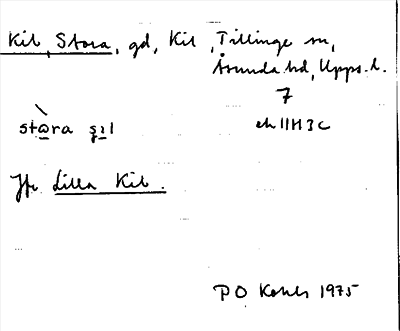 Kil, Stora, gd, Kil, Tillinge sn,
Åsunda hd, Upps. l.
7
stòra ʂɪl ek 11H3c
Jfr Lilla Kil.
PO 1975